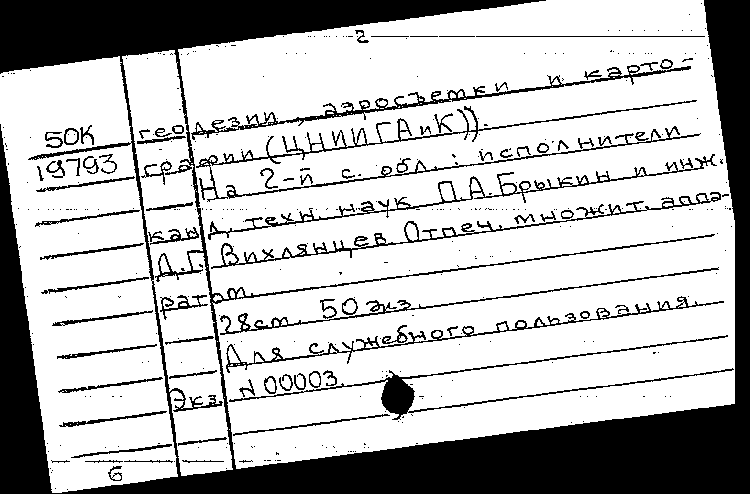 2
50К геодезии, аэросъемки и карто-
19793 графии (ЦНИИГАиК)).
На 2-й с. обл.: исполнители
канд. техн. наук П.А.Брыкин и инж.
Д.Г. Вихлянцев. Отпеч. множит. аппа-
ратом.
28см. 50 экз.
Для служебного пользования.
Экз. N 00003.
6